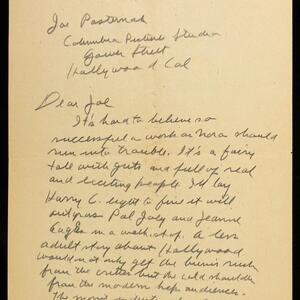 Joe Pasternak
Columbia Pictures Studio
Gower Street
Hollywood Cal
Dear Joe
It's hard to believe so
successful a work as Nora should
run into trouble. It's a fairy
tale with guts and full of real
and exciting people. I'd lay
Harry C. eight to five it will
outgross Pal Joey and Jeanne
Eagles in a walk. A less
adult story about Hollywood
would not only get the bum's rush
from the critics but the cold shoulder
from the modern hep audiences.
The movie